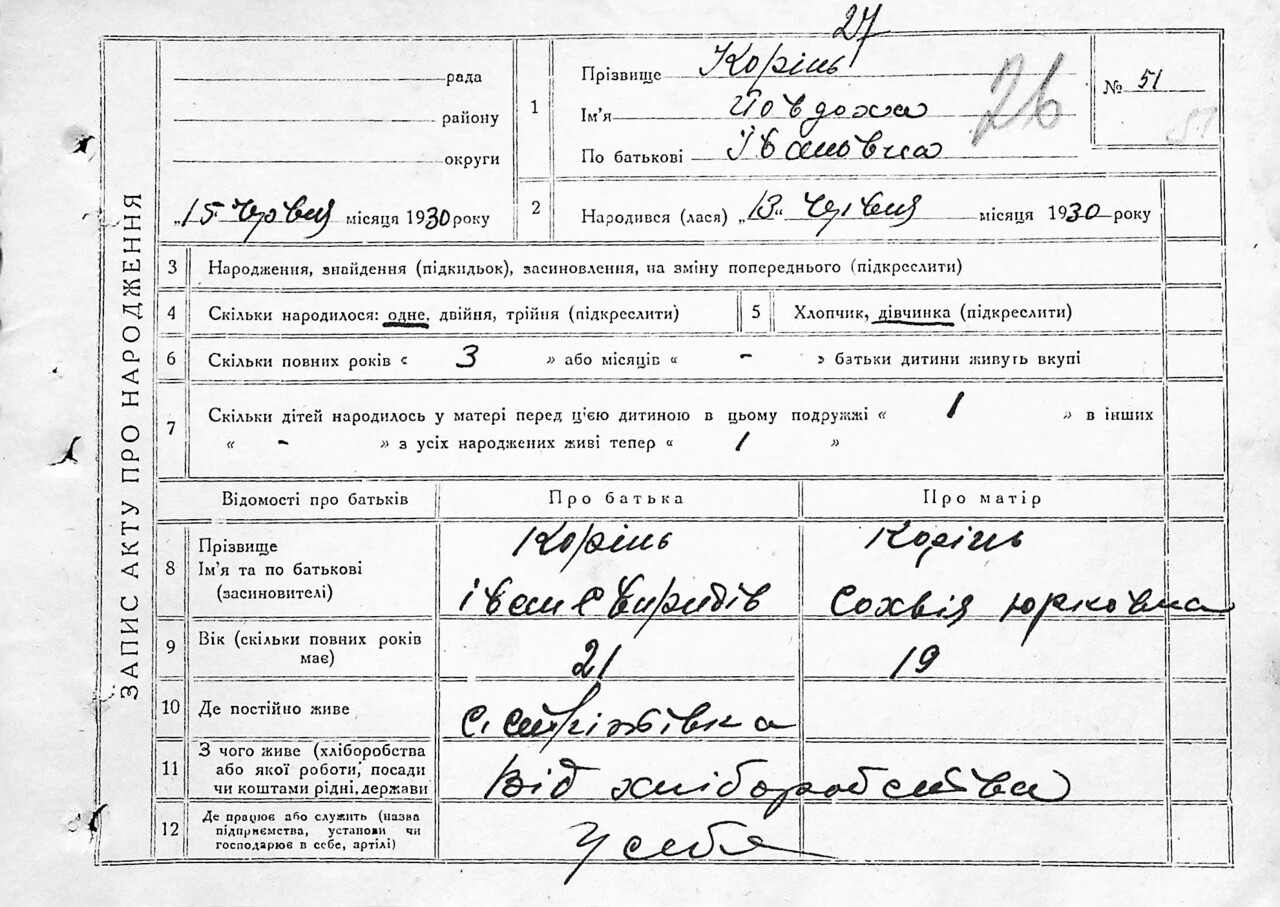 27
ЗАПИС АКТУ ПРО НАРОДЖЕННЯ
рада
району
округи
„15" червня місяця 1930 року
1
Прізвище Корінь
Ім'я Йовдоха
По батькові Івановна
26
№ 51
51
2
Народився (лася) „13" червня місяця 1930 року
3 Народження, знайдення (підкидьок), засиновлення, на зміну попереднього (підкреслити)
4 Скільки народилося: одне, двійня, трійня (підкреслити)
5 Хлопчик, дівчинка (підкреслити)
6 Скільки повних років « 3 » або місяців « - » батьки дитини живуть вкупі
7 Скільки дітей народилось у матері перед ц'єю дитиною в цьому подружжі « 1 » в інших
« - » з усіх народжених живі тепер « 1 »
Відомості про батьків Про батька Про матір
8 Прізвище
Ім'я та по батькові
(засиновителі)
Корінь
Іван Свиридів
Корінь
Сохвія Юрковна
9 Вік (скільки повних років
має)
21
19
10 Де постійно живе
с. Стріжівка
11 З чого живе (хліборобства
або якої роботи, посади
чи коштами рідні, держави
Від хліборобства
12 Де працює або служить (назва
підприємства, установи чи
господарює в себе, артілі)
У себя